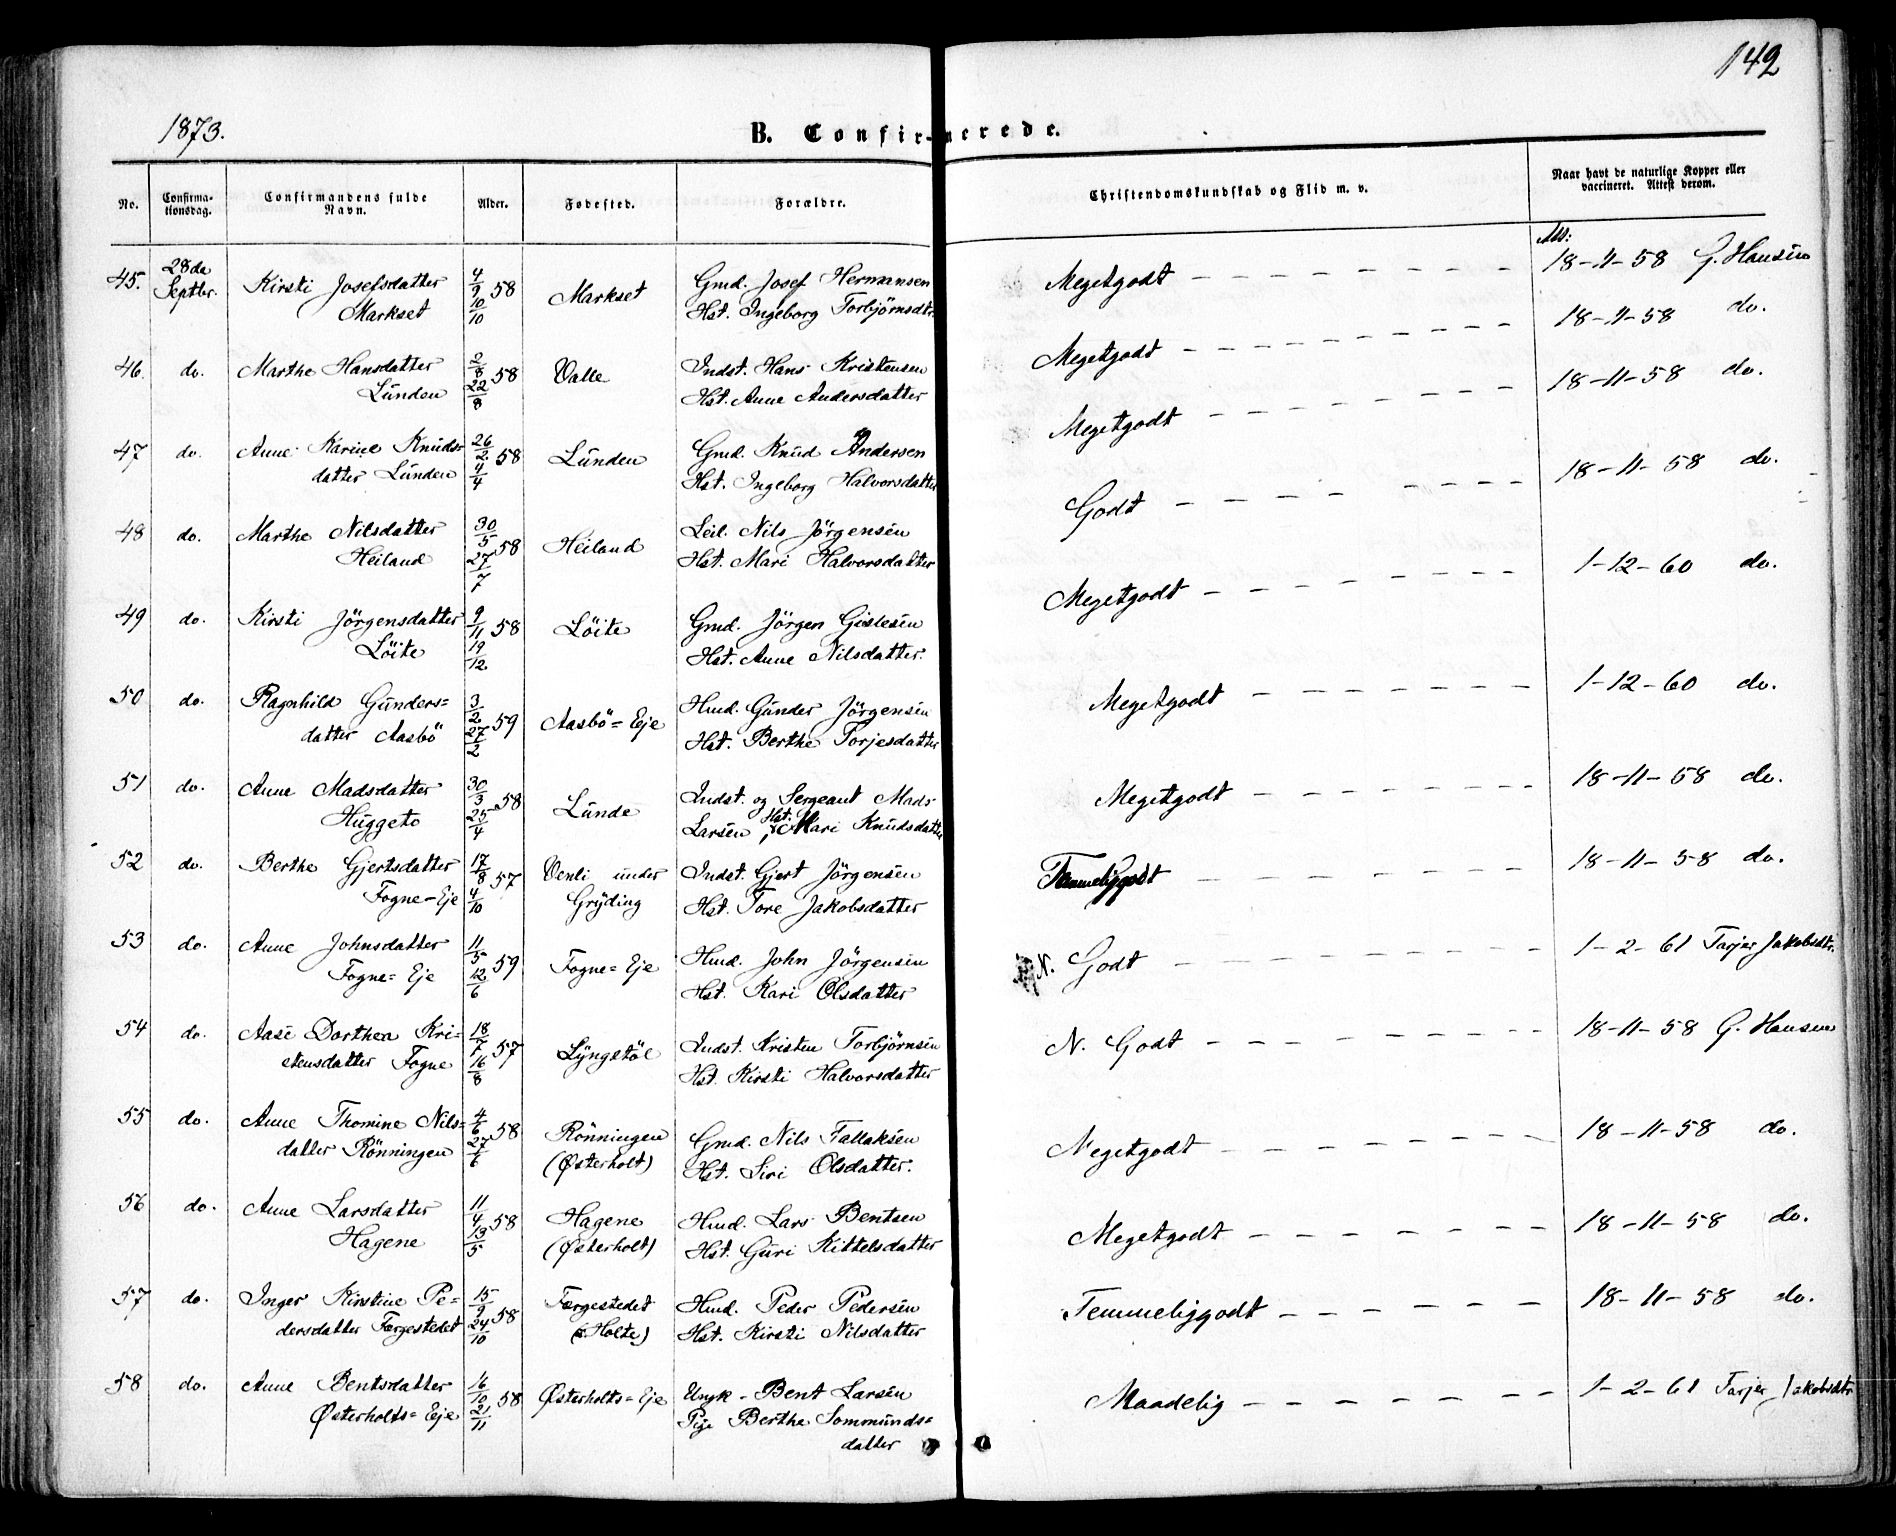 142
1873.
B. Confirmerede.
No.
Confirma-
tionsdag.
Confirmandens fulde
Navn.
Alder.
Fødested.
Forældre.
Christendomskundskab og Flid m. v.
Naar havt de naturlige Kopper eller
vaccineret. Attest derom.
45. 28de Septbr. Kirsti Josefsdatter Markset 4/9 58 10/10 Markset Gmd. Josef Hermansen Hst. Ingeborg Torbjørnsdtr. Megetgodt 18-11-58 G. Hansen
46. do. Marthe Hansdatter Lunden 2/8 58 22/8 Valle Indst. Hans Kristensen Hst. Anne Andersdatter Megetgodt 18-11-58 do.
47 do. Anne Karine Knuds=
datter Lunden 26/2 58 4/4 Lunden Gmd. Knud Andersen Hst. Ingeborg Halvorsdatter Megetgodt 18-11-58 do.
48 do. Marthe Nilsdatter Heiland 30/5 58 27/7 Heiland Leil. Nils Jörgensen Hst. Mari Halvorsdatter Godt 18-11-58 do.
49 do. Kirsti Jörgensdatter Löite 9/11 58 19/12 Löite Gmd. Jörgen Gislesen Hst. Anne Nilsdatter. Megetgodt 1-12-60 do.
50 do. Ragnhild Gunders=
datter Aasbö 3/2 59 27/2 Aasbö=Eje Hmd. Gunder Jörgensen Hst. Berthe Torjesdatter Megetgodt 1-12-60 do.
51 do. Anne Madsdatter Huggeto 30/3 58 25/4 Lunde Indst. og Sergeant Mads Larsen, Hst. Mari Knudsdatter Megetgodt 18-11-58 do.
52 do. Berthe Gjertsdatter Fogne=Eje 17/8 57 4/10 Venli under Gryding Indst. Gjert Jörgensen Hst. Tore Jakobsdatter Temmeliggodt 18-11-58 do.
53 do. Anne Johnsdatter Fogne=Eje 11/5 59 12/6 Fogne=Eje Hmd. John Jörgensen Hst. Kari Olsdatter N. Godt 1-2-61 Tarjer Jakobsdtr.
54 do. Aase Dorthea Kri=
stensdatter Fogne 18/7 57 16/8 Lyngstöl Indst. Kristen Torbjörnsen Hst. Kirsti Halvorsdatter N. Godt 18-11-58 G. Hansen
55 do. Anne Thomine Nils=
datter Rönningen 4/6 58 27/6 Rönningen (Østerholt) Gmd. Nils Tallaksen Hst. Siri Olsdatter. Megetgodt 18-11-58 do.
56 do. Anne Larsdatter Hagene 11/4 58 13/5 Hagene (Østerholt) Hmd. Lars Bentsen Hst. Guri Kittelsdatter Megetgodt 18-11-58 do.
57 do. Inger Kirstine Pe=
dersdatter Færgestedet 15/9 58 24/10 Færgestedet (Holte) Hmd. Peder Pedersen Hst. Kirsti Nilsdatter Temmeliggodt 18-11-58 do.
58 do. Anne Bentsdatter Østerholts=Eje 16/10 58 21/11 Østerholts=Eje Ungk. Bent Larsen Pige Berthe Sommunds=
datter Maadelig 1-2-61 Tarjer Jakobsdtr